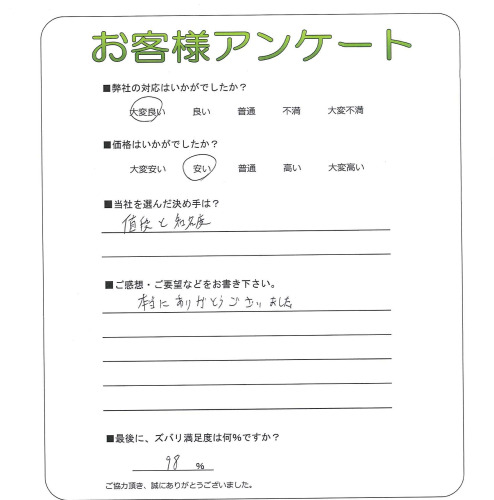 お客様アンケート
■弊社の対応はいかがでしたか？
大変良い 良い 普通 不満 大変不満
■価格はいかがでしたか？
大変安い 安い 普通 高い 大変高い
■当社を選んだ決め手は？
値段と知名度
■ご感想・ご要望などをお書き下さい。
本当にありがとうございました
■最後に、ズバリ満足度は何%ですか？
98 %
ご協力頂き、誠にありがとうございました。